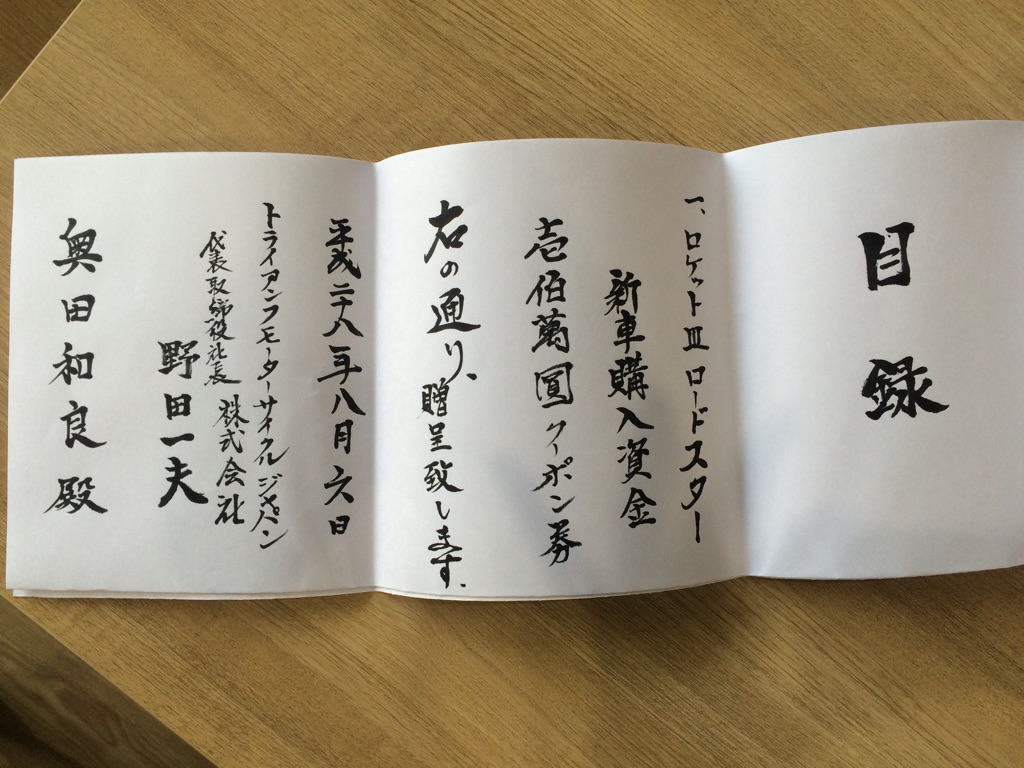 目録
一、ロケットⅢロードスター
新車購入資金
壱佰萬圓クーポン券
右の通り、贈呈致します。
平成二十八年八月六日
トライアンフモーターサイクルジャパン
株式会社
代表取締役社長
野田一夫
奥田和良殿